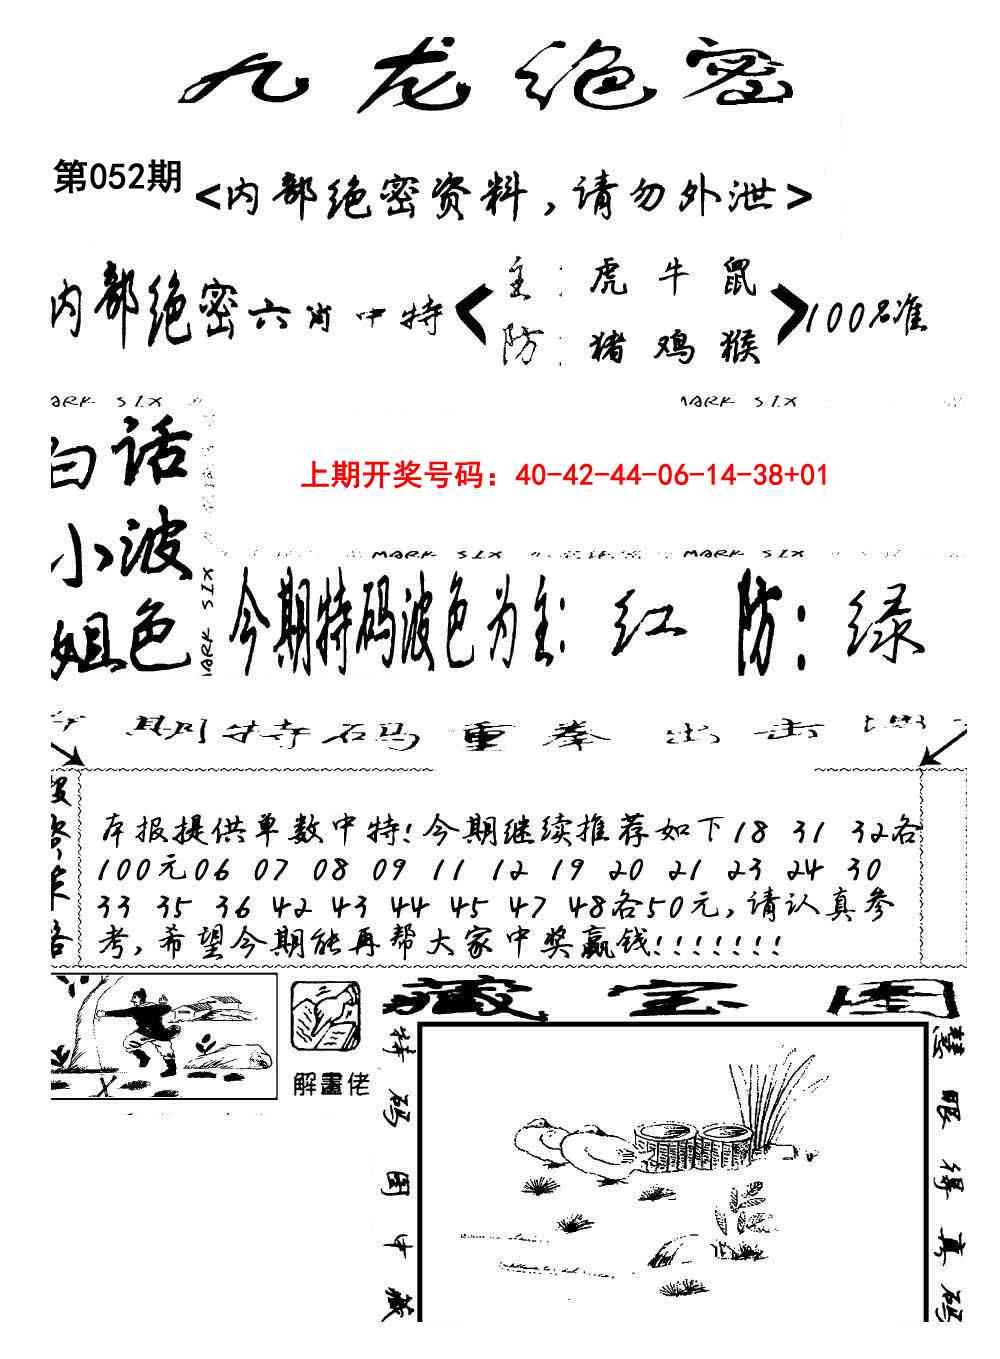 九龙绝密
第052期
<内部绝密资料，请勿外泄>
内部绝密六肖中特
主：虎 牛 鼠
防：猪 鸡 猴
100%准
MARK SIX
MARK SIX
白话
小波
姐色
上期开奖号码：40-42-44-06-14-38+01
MARK SIX
MARK SIX
MARK SIX
今期特码波色为主：红 防：绿
期特码重拳出击
本报提供单数中特！今期继续推荐如下18 31 32各
100元06 07 08 09 11 12 19 20 21 23 24 30
33 35 36 42 43 44 45 47 48各50元，请认真参
考，希望今期能再帮大家中奖赢钱！！！！！！！
解畫佬
藏宝图
特码图中藏
慧眼得真码